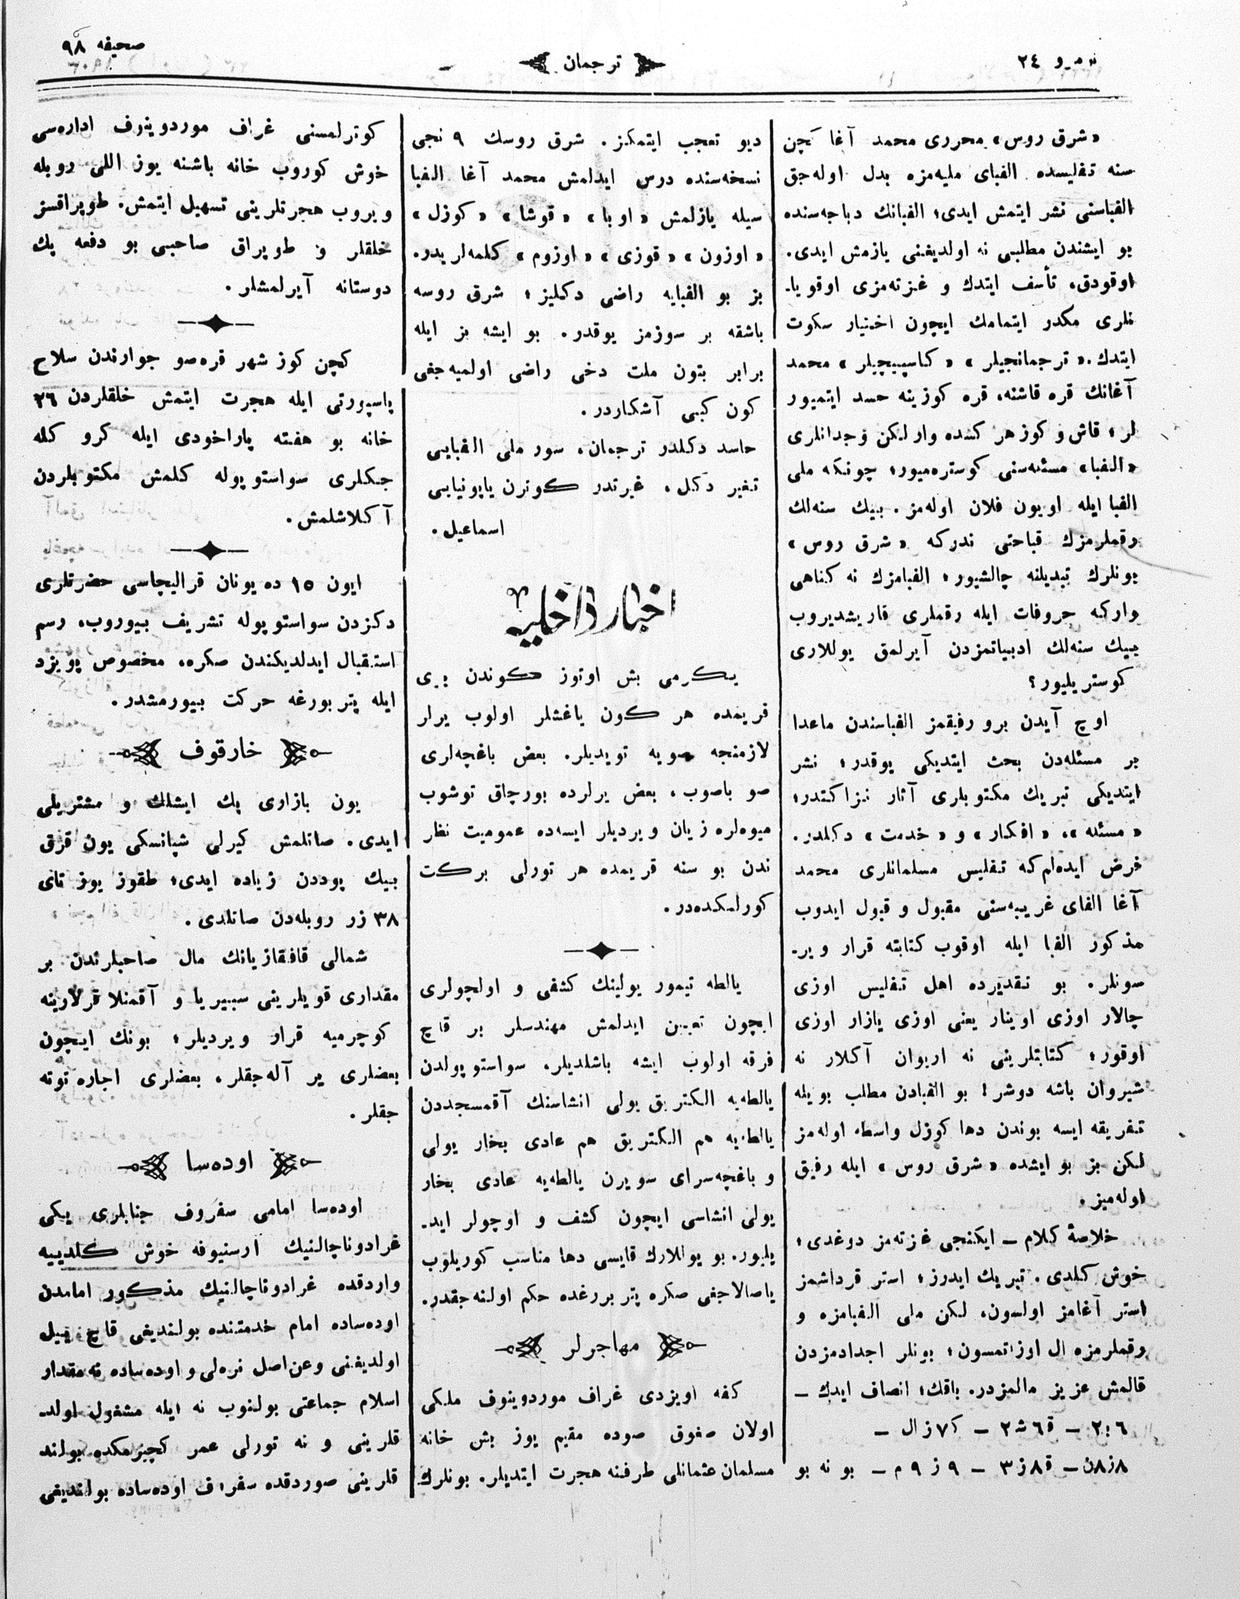 نومرو ٢٤
ترجمان
صحيفه ٩٨
«شرق روس» محررى محمد آغا كچن
سنه تفليسده الفباى مليه‌مزه بدل اوله‌جق
الفباسنى نشر ايتمش ايدى؛ الفبانك دباجه‌سنده
بو ايشندن مطلبى نه اولديغنى يازمش ايدى.
اوقودق، تأسف ايتدك و غزته‌مزى اوقويا-
نلرى مكدر ايتمامك ايچون اختيار سكوت
ايتدك. «ترجمانجيلر» «كاسپيچيلر» محمد
آغانك قره قاشنه، قره كوزينه حسد ايتميور
لر؛ قاش و كوز هر كسده وار ليكن وجدانلرى
«الفبا» مسئله‌سنى كوستره‌ميور؛ چونكه ملى
الفبا ايله اويون فلان اوله‌مز. بيك سنه‌لك
رقملرمزك قباحتى ندركه «شرق روس»
بونلرك تبديلنه چالشيور؛ الفبامزك نه كناهى
واركه حروفات ايله رقملرى قاريشديروب
بيك سنه‌لك ادبياتمزدن آيرلمق يوللارى
كوستريليور؟
اوچ آيدن برو رفيقمز الفباسندن ماعدا
بر مسئله‌دن بحث ايتديكى يوقدر؛ نشر
ايتديكى تبريك مكتوبلرى آثار نزاكتدر؛
«مسئله»، «افكار» و «خدمت» دكلدر.
فرض ايده‌لم كه تفليس مسلمانلرى محمد
آغا الفاى غريبه‌سنى مقبول و قبول ايدوب
مذكور الفبا ايله اوقوب كتابته قرار وير-
سونلر. بو تقديرده اهل تفليس اوزى
چالار اوزى اوينار يعنى اوزى يازار اوزى
اوقور؛ كتابلرينى نه اريوان آكلار نه
شيروان باشه دوشر! بو الفبادن مطلب بويله
تفريقه ايسه بوندن دها كوزل واسطه اوله‌مز
لكن بز بو ايشده «شرق روس» ايله رفيق
اوله‌ميز.
خلاصهٔ كلام – ايكنجى غزته‌مز دوغدى؛
خوش كلدى. تبريك ايدرز؛ استر قرداشمز
استر آغامز اولسون، لكن ملى الفبامزه و
رقملرمزه ال اوزاتمسون؛ بونلر اجدادمزدن
قالمش عزيز مالمزدر. باقك؛ انصاف ايدك –
٦ب٢ – ق٦ش٢ – ك٧زال –
٨ز٨ن – ق٨ز٣ – ٩ز٩م – بو نه بو
ديو تعجب ايتمكز. شرق روسك ٩ نجى
نسخه‌سنده درس ايدلمش محمد آغا الفبا
سيله يازلمش «اوبا» «قوشا» «كوزل»
«اوزون» «قوزى» «اوزوم» كلمه‌لريدر.
بز بو الفبايه راضى دكليز؛ شرق روسه
باشقه بر سوزمز يوقدر. بو ايشه بز ايله
برابر بتون ملت دخى راضى اولميه‌جغى
كون كبى آشكاردر.
حاسد دكلدر ترجمان، سور ملى الفبايى
تغير دكل، غيرتدر كوترن ياپونيايى
اسماعيل.
اخبار داخليه
يكرمى بش اوتوز كوندن برى
قريمده هر كون ياغشلر اولوب يرلر
لازمنجه صويه تويديلر. بعض باغچه‌لرى
صو باصوب، بعض يرلرده بورچاق توشوب
ميوه‌لره زيان ويرديلر ايسه‌ده عموميت نظار
ندن بو سنه قريمده هر تورلى بركت
كورلمكده‌در.
يالطه تيمور يولينك كشفى و اولچولرى
ايچون تعيين ايدلمش مهندسلر بر قاچ
فرقه اولوب ايشه باشلديلر. سواستوپولدن
يالطه‌يه الكتريق يولى انشاسنك آقمسجددن
يالطه‌يه هم الكتريق هم عادى بخار يولى
و باغچه‌سراى سويرن يالطه‌يه عادى بخار
يولى انشاسى ايچون كشف و اوچولر ايد-
يليور. بو يوللارك قايسى دها مناسب كوريلوب
ياصالاجغى صكره پتربرغده حكم اولنه‌جقدر.
مهاجرلر
كفه اويزدى غراف موردوينوف ملكى
اولان صغوق صوده مقيم يوز بش خانه
مسلمان عثمانلى طرفنه هجرت ايتديلر. بونلرك
كوترلمسنى غراف موردوينوف اداره‌سى
خوش كوروب خانه باشنه يوز اللى روبله
ويروب هجرتلرينى تسهيل ايتمش. طوپراقسز
خلقلر و طوپراق صاحبى بو دفعه پك
دوستانه آيرلمشلر.
كچن كوز شهر قره‌صو جوارندن سلاح
پاسپورتى ايله هجرت ايتمش خلقلردن ٢٦
خانه بو هفته پاراخودى ايله كرو كله
جكلرى سواستوپوله كلمش مكتوبلردن
آكلاشلمش.
ايون ١٥ ده يونان قراليچاسى حضرتلرى
دكزدن سواستوپوله تشريف بيوروب، رسم
استقبال ايدلديكندن صكره، مخصوص پويزد
ايله پتربورغه حركت بيورمشدر.
خارقوف
يون بازارى پك ايشلك و مشتريلى
ايدى. صاتلمش كيرلى شپانسكى يون قرق
بيك پوددن زياده ايدى؛ طقوز يوز تاى
٣٨ زر روبله‌دن صاتلدى.
شمالى قافقازيانك مال صاحبلرندن بر
مقدارى قويلرينى سيبيريا و آقمنلا قرلارينه
كوچرميه قرار ويرديلر؛ بونك ايچون
بعضلرى ير آله‌جقلر، بعضلرى اجاره توته
جقلر.
اوده‌سا
اوده‌سا امامى سفروف جنابلرى يكى
غرادوناچالنيك ارسنيوفه خوش كلدييه
واردقده غرادوناچالنيك مذكور امامدن
اوده‌ساده امام خدمتنده بولنديغى قاچ ييل
اولديغنى و عن‌اصل نره‌لى و اوده‌ساده نه‌مقدار
اسلام جماعتى بولنوب نه ايله مشغول اولد-
قلرينى و نه تورلى عمر كچيرمكده بولند
قلرينى صوردقده سفروف اوده‌ساده بولنديغى